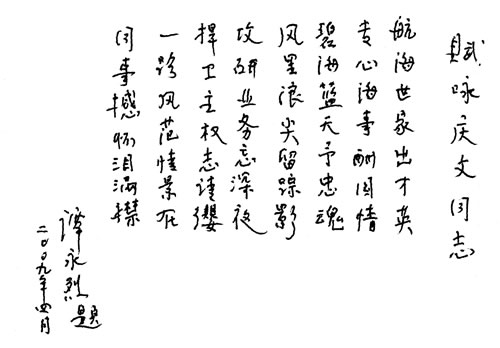 赋咏庆文同志
航海世家出才英
专心海事酬国情
碧海篮天予忠魂
风里浪尖留踪影
攻研业务忘深夜
捍卫主权志请缨
一路风范情景在
同事憾怀泪满襟
谭永烈题
二〇〇九年四月